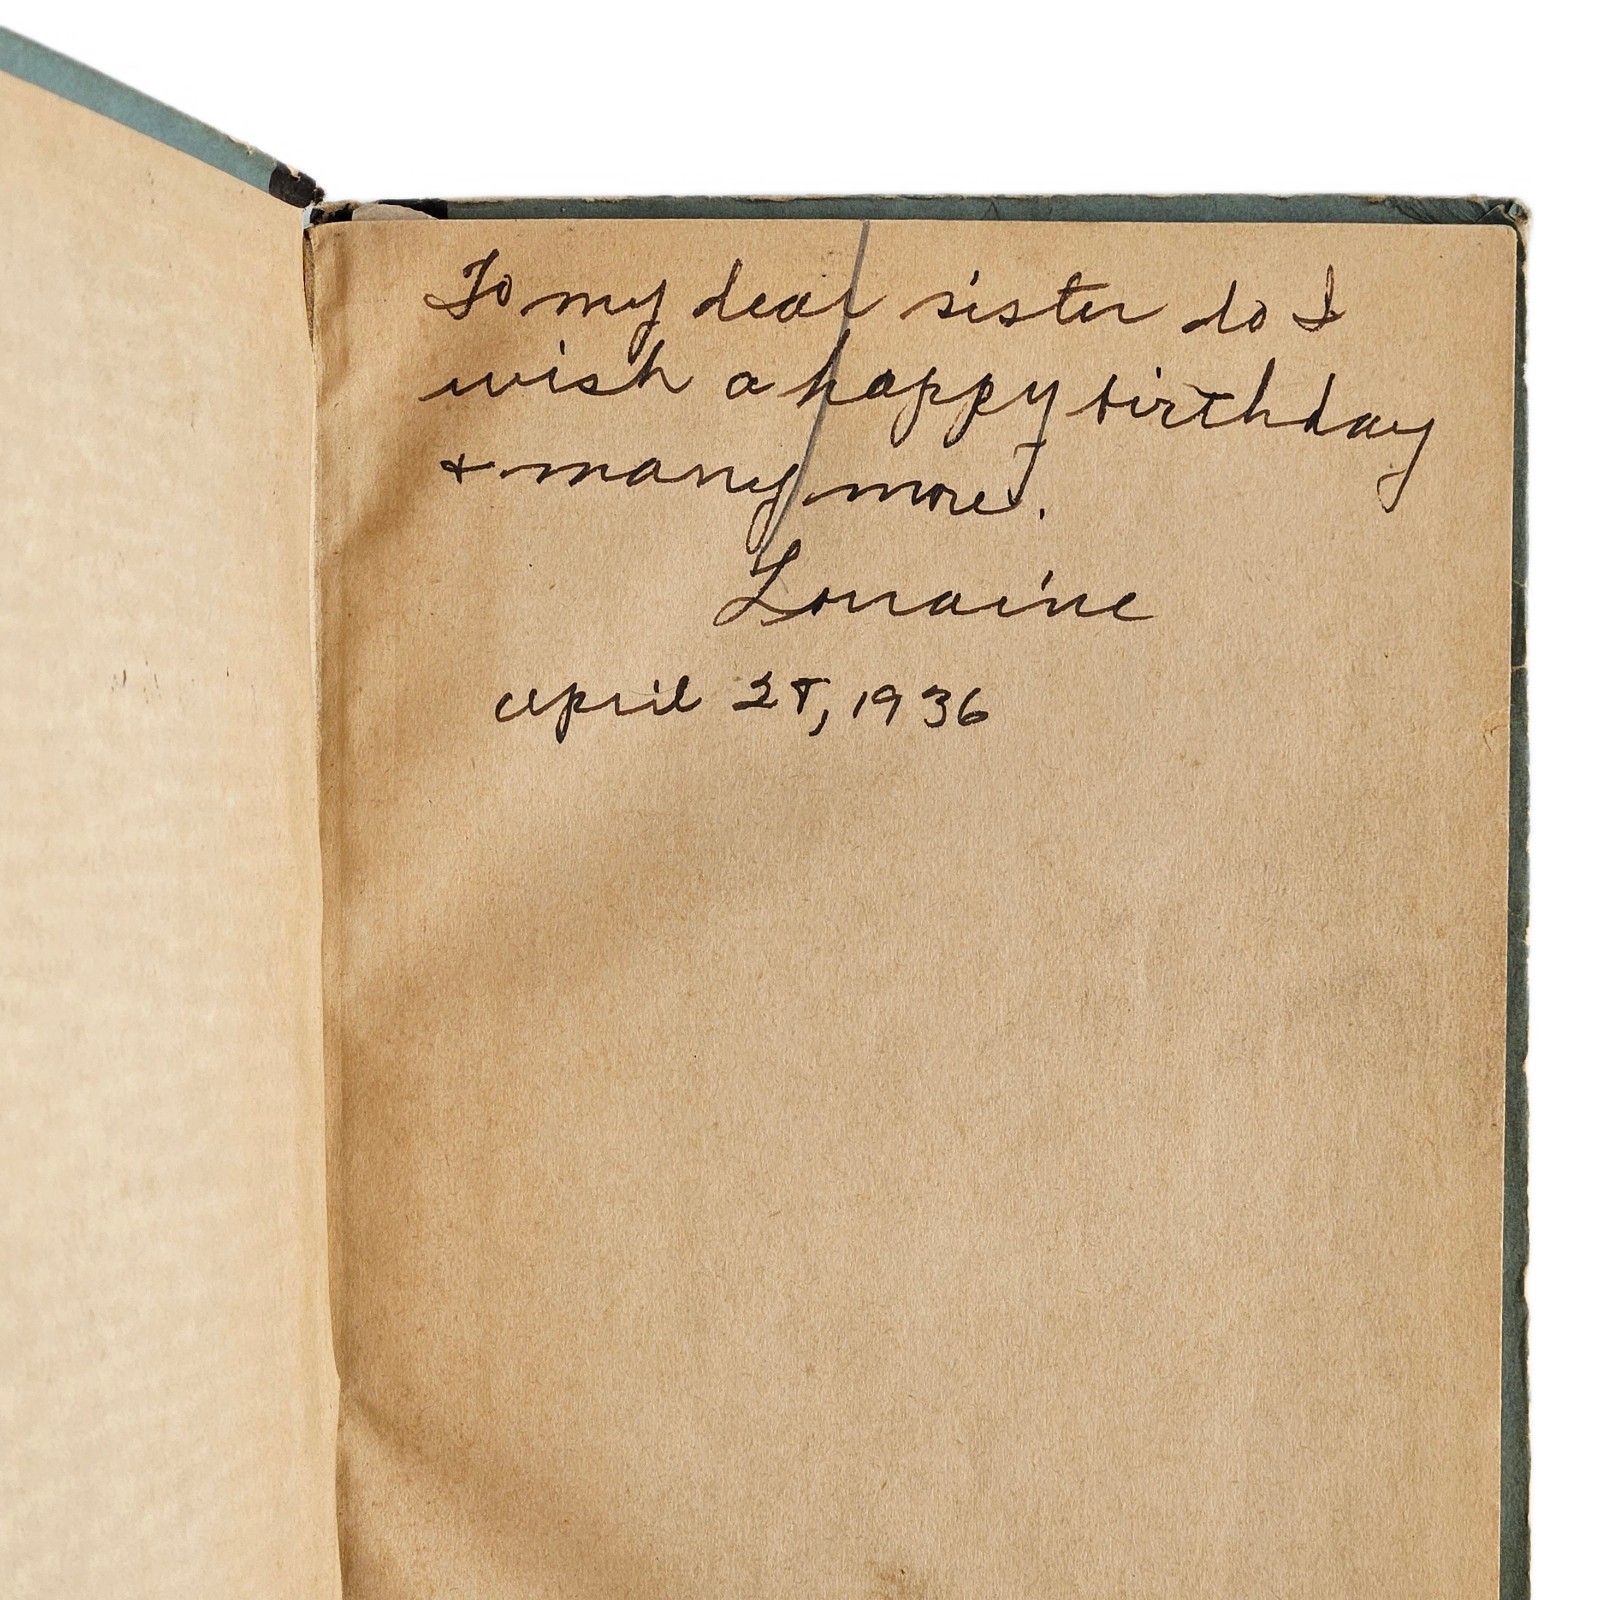 To my dear sister do I
wish a happy birthday
& many more.
Lorraine
april 1936